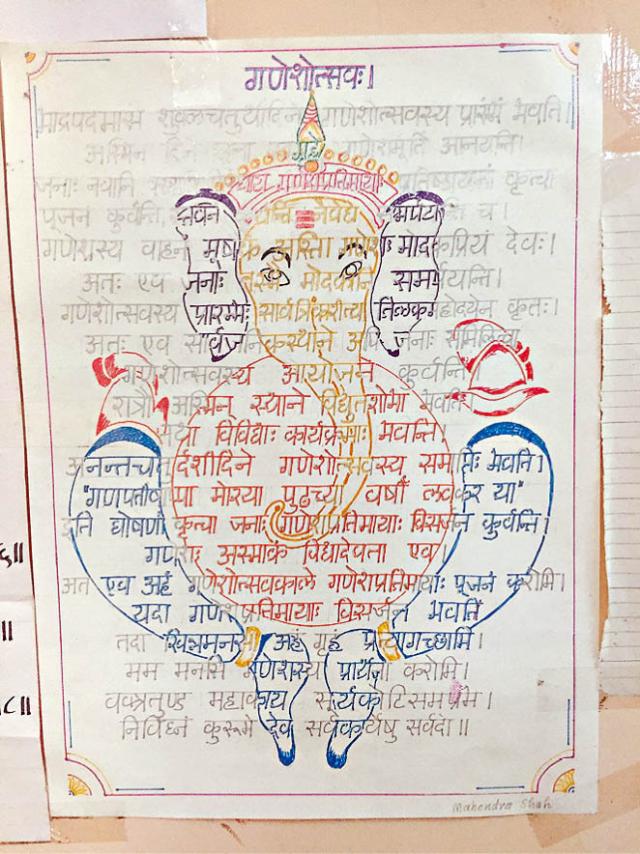 गणेशोत्सवः।
भाद्रपदमास शुक्लचतुर्थीदिने गणेशोत्सवस्य प्रारंभं भवति।
अस्मिन् दिने गृहे गणेशमूर्ति आनयन्ति।
जनाः नवानि गणेशप्रतिमायाः कृत्वा
पूजन कुर्वन्ति, नैवेद्य च।
गणेशस्य वाहनं मूषक अस्ति। मोदकप्रियं देवः।
अतः एव जनाः मोदकान समर्पयन्ति।
गणेशोत्सवस्य प्रारम्भः सार्वत्रिकरीत्या तिळकमहोदयेन कृतः।
अतः एव सार्वजनिकस्थाने अपि जनाः
गणेशोत्सवस्य आयोजनं कुर्वन्ति।
रात्रौ अस्मिन् स्थाने विद्युतशोभा भवति।
विविधाः कार्यक्रमाः भवन्ति।
अनन्तचतुर्दशीदिने गणेशोत्सवस्य समाप्तिः भवति।
"गणपतीबाप्पा मोरया पुढच्या वर्षी लवकर या"
इति घोषणां कृत्वा जनाः गणेशप्रतिमायाः विसर्जन कुर्वन्ति।
गणेशः अस्माकं विद्यादेवता एव।
अत एव अहं गणेशोत्सवकाले गणेशप्रतिमायाः पूजनं करोमि।
यदा गणेशप्रतिमायाः विसर्जनं भवति
तदा खिन्नमनसा अहं गृहं प्रत्यागच्छामि।
मम मनसि गणेशस्य प्रार्थना करोमि।
वक्रतुण्ड महाकाय सूर्यकोटिसमप्रभ।
निर्विघ्नं कुरूमे देव सर्वकार्येषु सर्वदा॥
Mahendra Shah